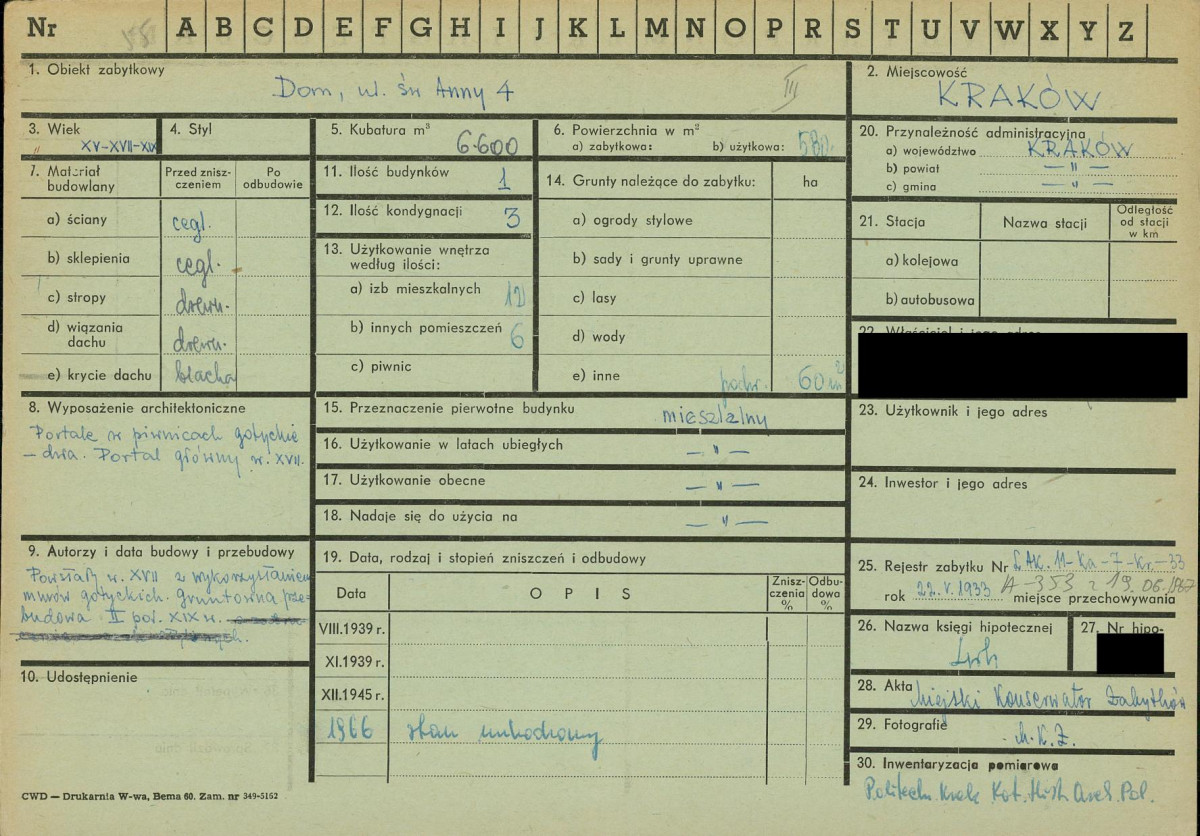 Nr A B C D E F G H I J K L M N O P R S T U V W X Y Z
1. Obiekt zabytkowy
Dom, ul. św Anny 4
III
2. Miejscowość
KRAKÓW
3. Wiek
XV-XVII-XIX
4. Styl
5. Kubatura m³
6.600
6. Powierzchnia w m²
a) zabytkowa: b) użytkowa: 580.
7. Materiał budowlany
Przed zniszczeniem
Po odbudowie
a) ściany cegl.
b) sklepienia cegl.
c) stropy drewn.
d) wiązania dachu drewn.
e) krycie dachu blacha
11. Ilość budynków 1
12. Ilość kondygnacji 3
13. Użytkowanie wnętrza
według ilości:
a) izb mieszkalnych 12
b) innych pomieszczeń 6
c) piwnic
14. Grunty należące do zabytku: ha
a) ogrody stylowe
b) sady i grunty uprawne
c) lasy
d) wody
e) inne podw. 60 m²
20. Przynależność administracyjna
a) województwo KRAKÓW
b) powiat — " —
c) gmina — " —
21. Stacja
Nazwa stacji
Odległość od stacji w km
a) kolejowa
b) autobusowa
22. Właściciel i jego adres
23. Użytkownik i jego adres
24. Inwestor i jego adres
8. Wyposażenie architektoniczne
Portale w piwnicach gotyckie
– dwa. Portal główny w. XVII.
15. Przeznaczenie pierwotne budynku mieszkalny
16. Użytkowanie w latach ubiegłych — " —
17. Użytkowanie obecne — " —
18. Nadaje się do użycia na — " —
9. Autorzy i data budowy i przebudowy
Powstały w. XVII z wykorzystaniem
murów gotyckich. Gruntowna prze=
budowa II poł. XIX w.
10. Udostępnienie
19. Data, rodzaj i stopień zniszczeń i odbudowy
Data
OPIS
Zniszczenia %
Odbudowa %
VIII.1939 r.
XI.1939 r.
XII.1945 r.
1966 stan
25. Rejestr zabytku Nr Ł.AK. 11-Ka-7-Kr.-33
rok 22.V.1933 A-353 z 19.06.1967
miejsce przechowywania
26. Nazwa księgi hipotecznej
27. Nr hipo-
28. Akta Miejski Konserwator Zabytków
29. Fotografie M.K.Z.
30. Inwentaryzacja pomiarowa
Politechn. Krak. Kat. Hist. Arch. Pol.
CWD — Drukarnia W-wa, Bema 60. Zam. nr 349-5162